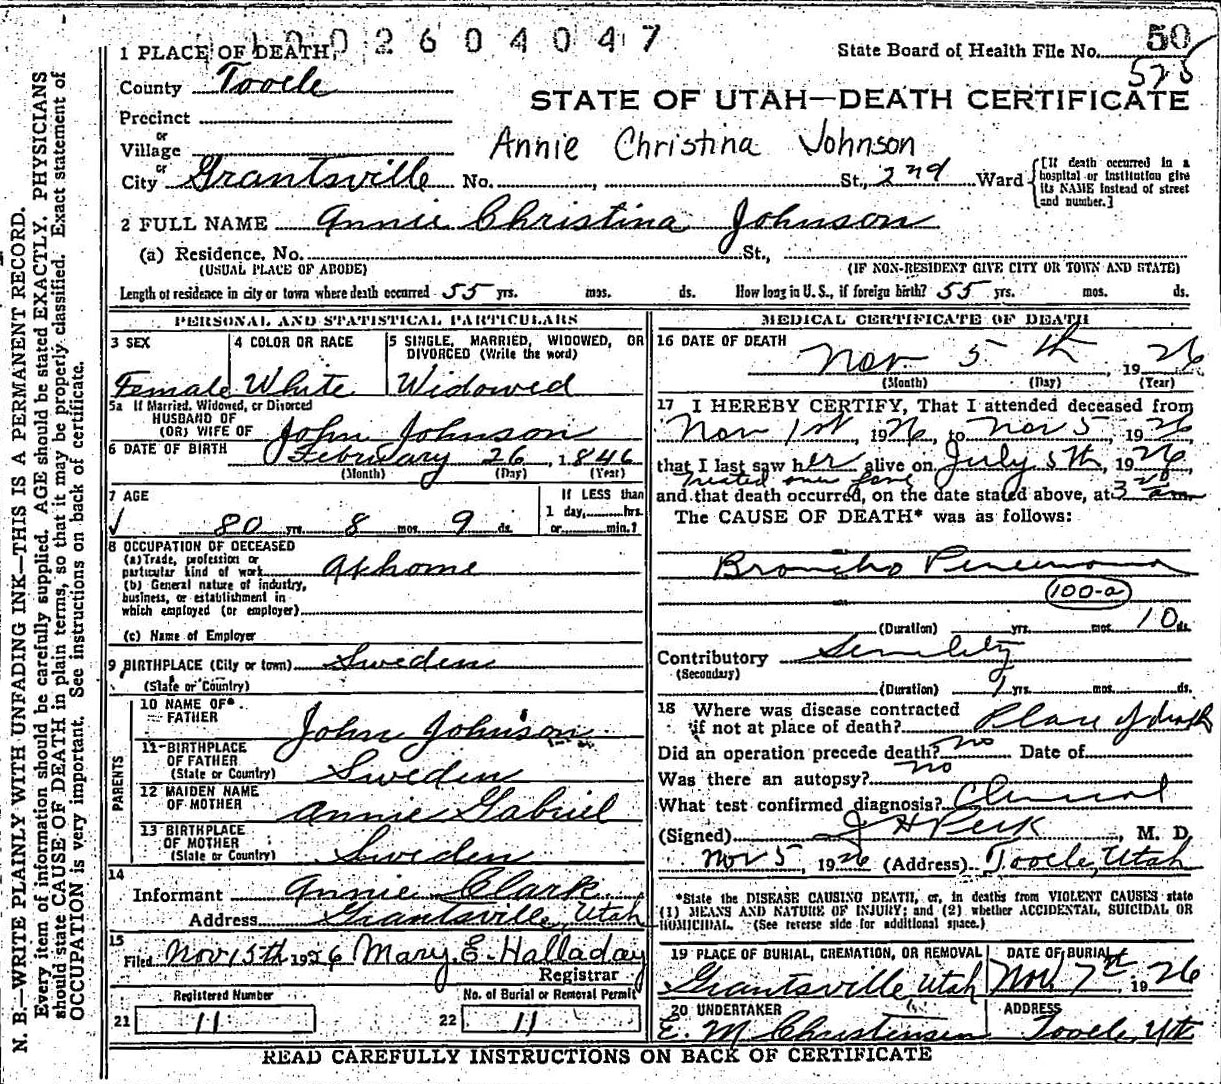 1002604047
1 PLACE OF DEATH,
State Board of Health File No. 50
525
County Tooele
STATE OF UTAH—DEATH CERTIFICATE
Precinct
or
Village
Annie Christina Johnson
or
City Grantsville No. , St., 2nd Ward
[If death occurred in a hospital or institution give its NAME instead of street and number.]
2 FULL NAME Annie Christina Johnson
(a) Residence, No. St.,
(USUAL PLACE OF ABODE) (IF NON-RESIDENT GIVE CITY OR TOWN AND STATE)
Length of residence in city or town where death occurred 55 yrs. mos. ds. How long in U.S., if foreign birth? 55 yrs. mos. ds.
PERSONAL AND STATISTICAL PARTICULARS
3 SEX
Female
4 COLOR OR RACE
White
5 SINGLE, MARRIED, WIDOWED, OR
DIVORCED (Write the word)
Widowed
5a If Married, Widowed, or Divorced
HUSBAND OF
(OR) WIFE OF John Johnson
6 DATE OF BIRTH February 26, 1846
(Month) (Day) (Year)
7 AGE
80 yrs. 8 mos. 9 ds.
If LESS than
1 day, hrs.
or min.?
8 OCCUPATION OF DECEASED
(a) Trade, profession or
particular kind of work At home
(b) General nature of industry,
business, or establishment in
which employed (or employer)
(c) Name of Employer
9 BIRTHPLACE (City or town) Sweden
(State or Country)
PARENTS
10 NAME OF
FATHER John Johnson
11 BIRTHPLACE
OF FATHER
(State or Country) Sweden
12 MAIDEN NAME
OF MOTHER Annie Gabriel
13 BIRTHPLACE
OF MOTHER
(State or Country) Sweden
14
Informant Annie Clark
Address Grantsville, Utah
15
Filed Nov 15th 1926 Mary E. Halladay
Registrar
Registered Number
21 11
No. of Burial or Removal Permit
22 11
MEDICAL CERTIFICATE OF DEATH
16 DATE OF DEATH
Nov. 5th, 1926
(Month) (Day) (Year)
17 I HEREBY CERTIFY, That I attended deceased from
Nov 1st, 1926, to Nov 5, 1926,
that I last saw her alive on July 5th, 1926,
treated over fone
and that death occurred, on the date stated above, at 3 am.
The CAUSE OF DEATH* was as follows:
Broncho Pneumona
100-a
(Duration) yrs. mos. 10 ds.
Contributory Senility
(Secondary)
(Duration) 1 yrs. mos. ds.
18 Where was disease contracted
if not at place of death? Place of death
Did an operation precede death? no Date of
Was there an autopsy? no
What test confirmed diagnosis? Clinical
(Signed) J H Peck, M. D.
Nov 5, 1926 (Address) Tooele, Utah
*State the DISEASE CAUSING DEATH, or, in deaths from VIOLENT CAUSES state
(1) MEANS AND NATURE OF INJURY; and (2) whether ACCIDENTAL, SUICIDAL OR
HOMICIDAL. (See reverse side for additional space.)
19 PLACE OF BURIAL, CREMATION, OR REMOVAL
Grantsville Utah
DATE OF BURIAL
Nov. 7st, 1926
20 UNDERTAKER
E. M Christensen
ADDRESS
Tooele, Ut
READ CAREFULLY INSTRUCTIONS ON BACK OF CERTIFICATE
N. B.—WRITE PLAINLY WITH UNFADING INK—THIS IS A PERMANENT RECORD.
Every item of information should be carefully supplied. AGE should be stated EXACTLY. PHYSICIANS
should state CAUSE OF DEATH in plain terms, so that it may be properly classified. Exact statement of
OCCUPATION is very important. See instructions on back of certificate.